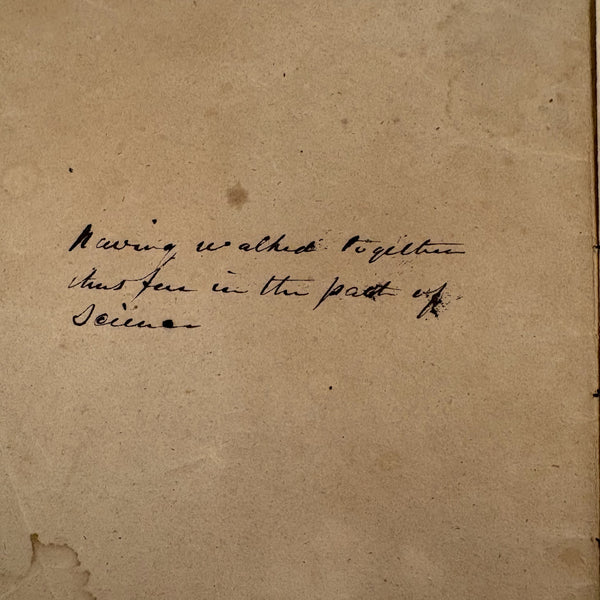 Having walked together
thus far in the path of
Science